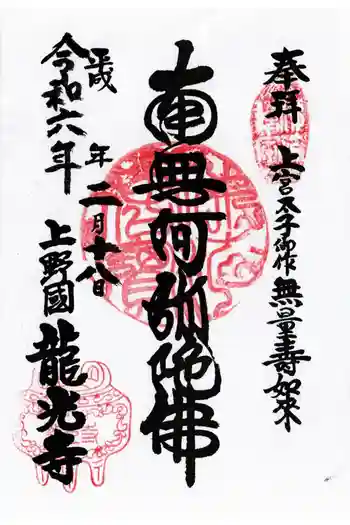 奉拝
上宮太子御作 無量壽如來
南無阿弥陀佛
平成 年 二月十八日
令和六年
上野國 龍光寺